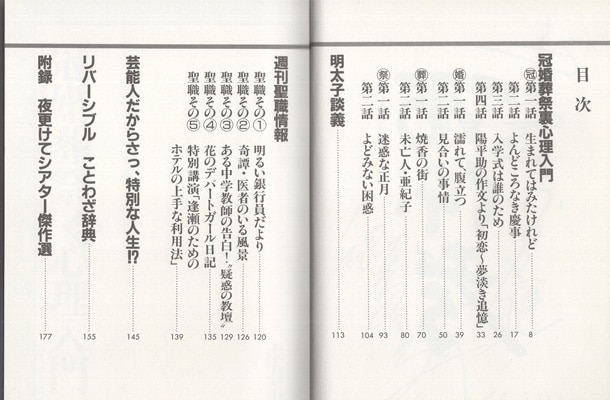 目次
冠婚葬祭裏心理入門
㊗冠 第一話 生まれてはみたけれど 8
第二話 よんどころなき慶事 17
第三話 入学式は誰のため 26
第四話 陽平助の作文より「初恋～夢淡き追憶」 33
婚 第一話 濡れて腹立つ 39
第二話 見合いの事情 50
葬 第一話 焼香の街 70
第二話 未亡人・亜紀子 80
祭 第一話 迷惑な正月 93
第二話 よどみない困惑 104
明太子談義 113
週刊聖職情報
聖職その① 明るい銀行員だより 120
聖職その② 奇譚・医者のいる風景 126
聖職その③ ある中学教師の告白！“疑惑の教壇” 129
聖職その④ 花のデパートガール日記 135
聖職その⑤ 特別講演「逢瀬のための
ホテルの上手な利用法」 139
芸能人だからさっ、特別な人生!? 145
リバーシブル ことわざ辞典 155
附録 夜更けてシアター傑作選 177